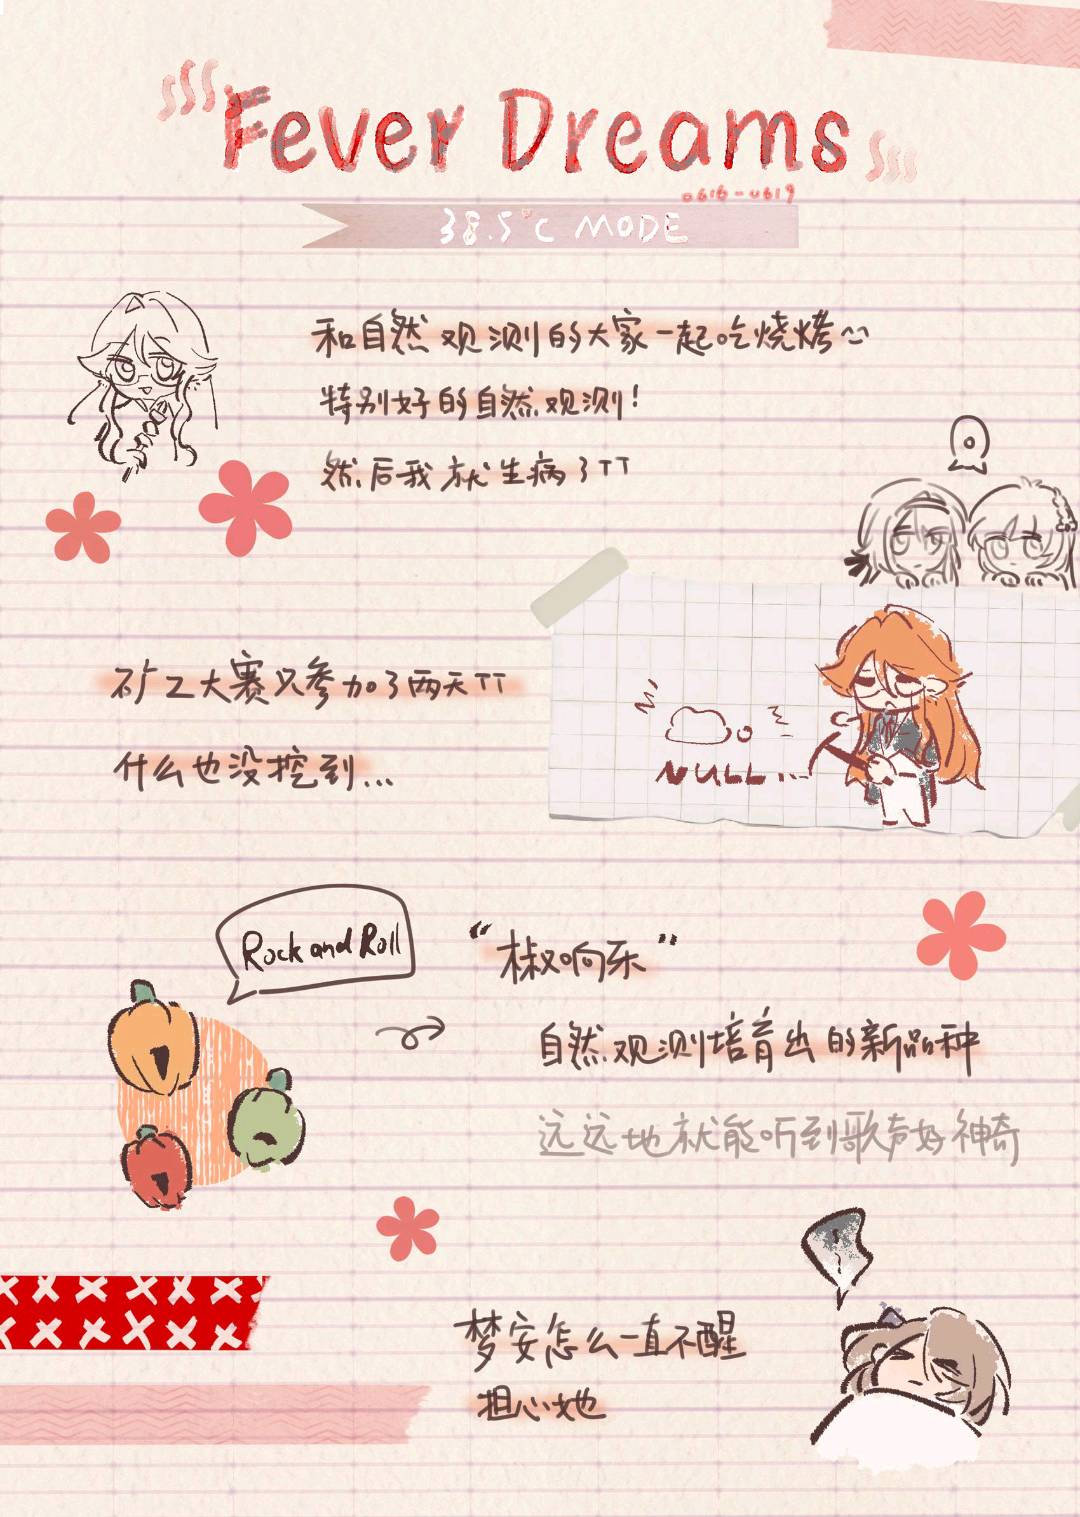 Fever Dreams
0616-0619
38.5°C MODE
和自然观测的大家一起吃烧烤~
特别好的自然观测!
然后我就生病了TT
矿工大赛只参加了两天TT
什么也没挖到...
NULL...
Rock and Roll
“椒响乐”
自然观测培育出的新品种
远远地就能听到歌声好神奇
梦安怎么一直不醒
担心她